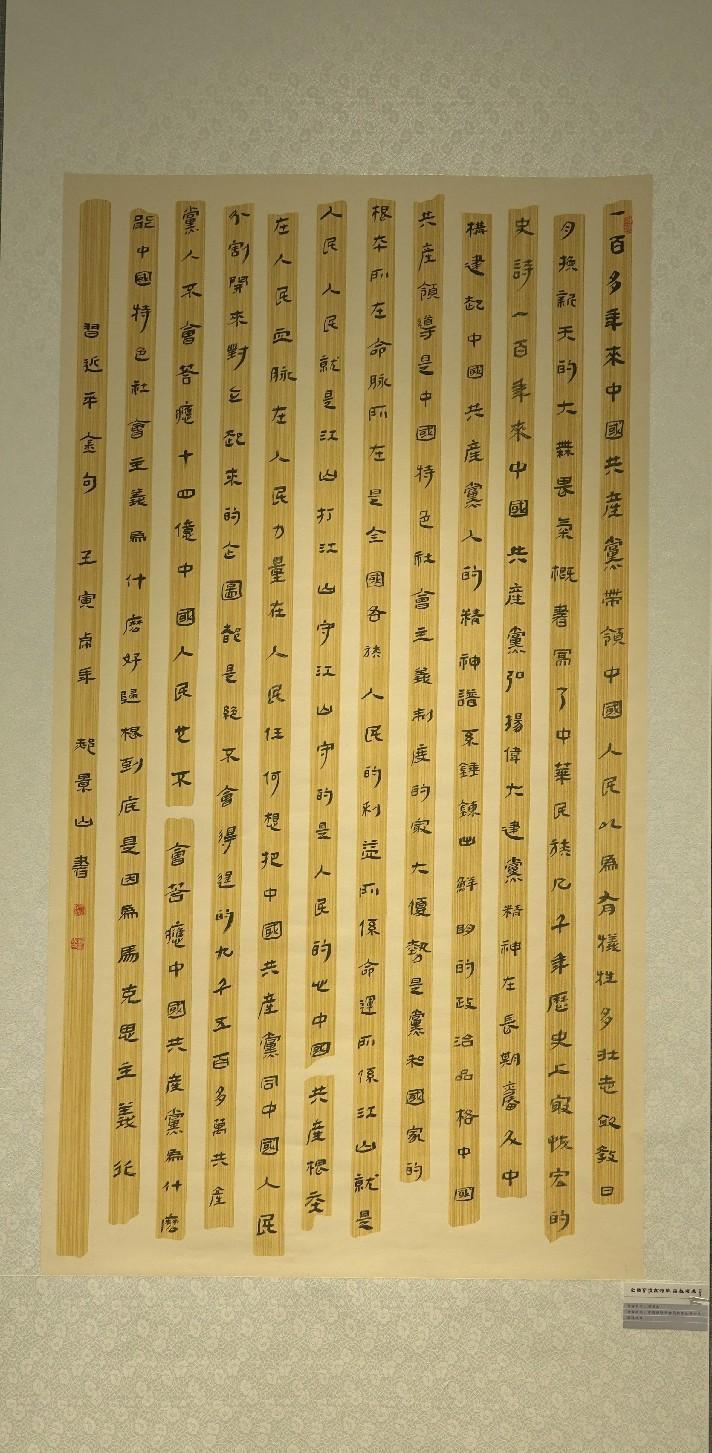 一百多年來中國共產黨帶領中國人民以為有犧牲多壯志敢教日
月換新天的大無畏氣概書寫了中華民族几千年歷史上最恢宏的
史詩一百年來中國共產黨弘揚偉大建黨精神在長期奮久中
構建起中國共產黨人的精神譜系錘鍊出鮮明的政治品格中國
共產領導是中國特色社會主義制度的家大優勢是黨和國家的
根本所在命脈所在是全國各族人民的利益所係命運所係江山就是
人民人民就是江山打江山守江山守的是人民的心中國共產根在
在人民血脈在人民力量在人民任何想把中國共產黨同中國人民
分割開來對立起來的企圖都是絕不會得逞的九千五百多萬共產
黨人不會答應十四億中國人民也不會答應中國共產黨為什麼
能中國特色社會主義為什麼好歸根到底是因為馬克思主義行
習近平金句 壬寅虎年 郝景山書